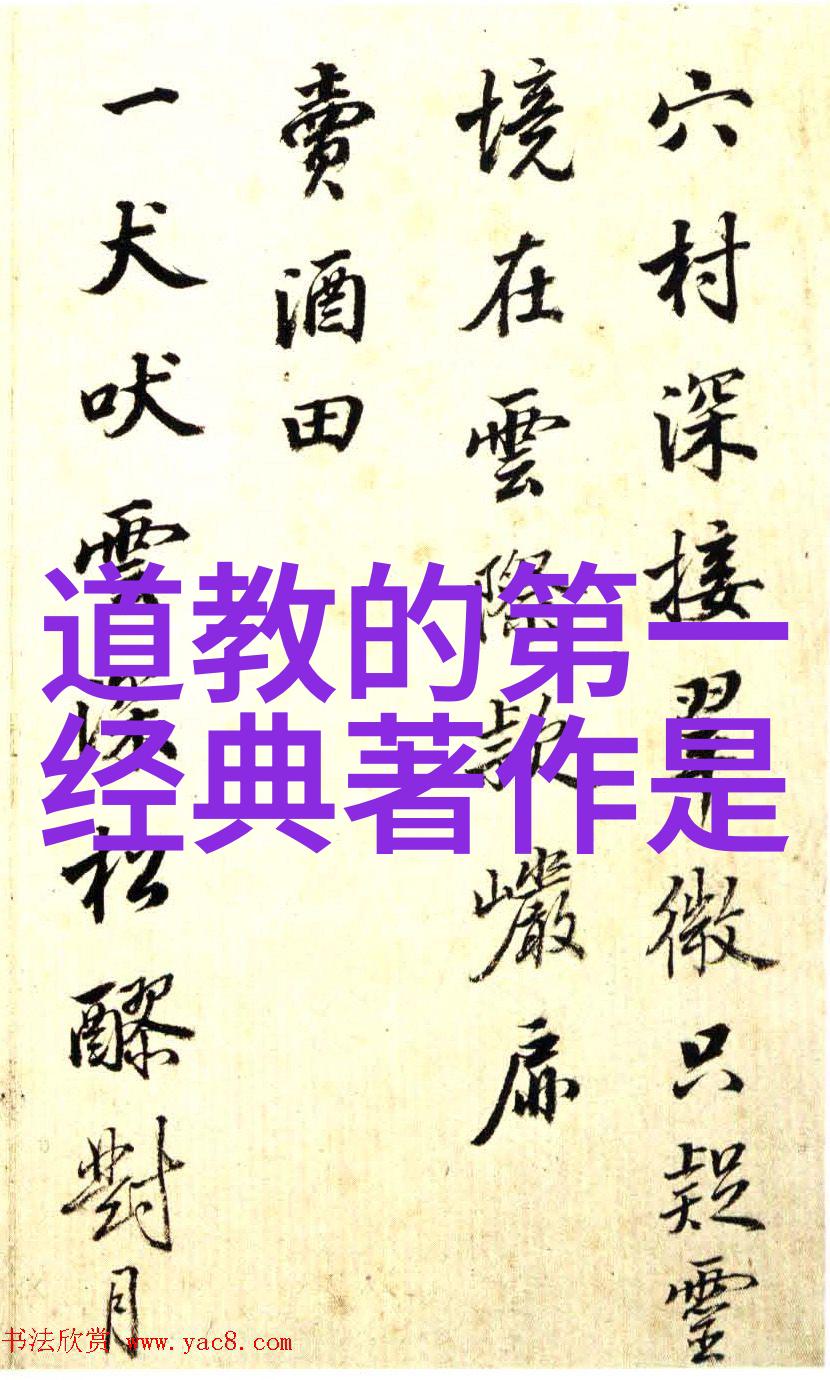 穴村深接翠微只疑靈
境在雲際款巖扉
賣酒田
一犬吠雲深松醪對月
道教的第一
经典著作是
书法欣赏 www.yac8.com